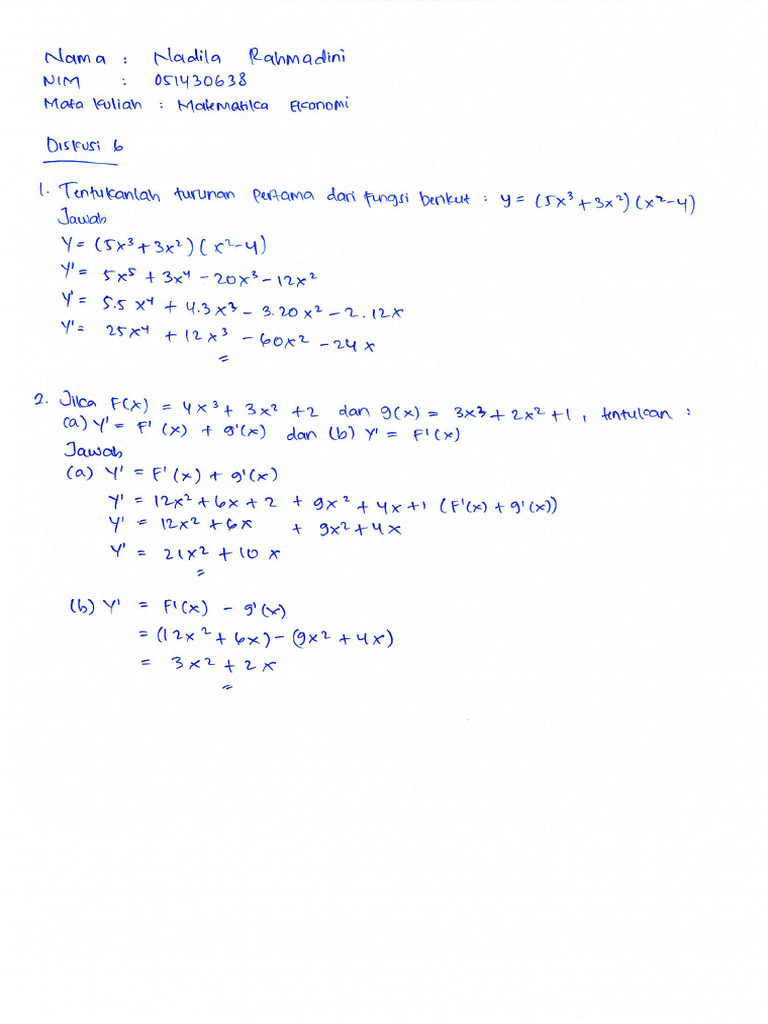 Nama : Nadila Rahmadini
NIM : 051430638
Mata Kuliah : Matematika Ekonomi
Diskusi 6
1. Tentukanlah turunan pertama dari fungsi berikut : y = (5x³ + 3x²) (x² - 4)
Jawab
Y = (5x³ + 3x²) (x² - 4)
Y' = 5x⁵ + 3x⁴ - 20x³ - 12x²
Y' = 5.5 x⁴ + 4.3x³ - 3.20x² - 2.12x
Y' = 25x⁴ + 12x³ - 60x² - 24x
=
2. Jika F(x) = 4x³ + 3x² + 2 dan g(x) = 3x³ + 2x² + 1, tentukan :
(a) Y' = F'(x) + g'(x) dan (b) Y' = F'(x)
Jawab
(a) Y' = F'(x) + g'(x)
Y' = 12x² + 6x + 2 + 9x² + 4x + 1 (F'(x) + g'(x))
Y' = 12x² + 6x + 9x² + 4x
Y' = 21x² + 10x
=
(b) Y' = F'(x) - g'(x)
= (12x² + 6x) - (9x² + 4x)
= 3x² + 2x
=